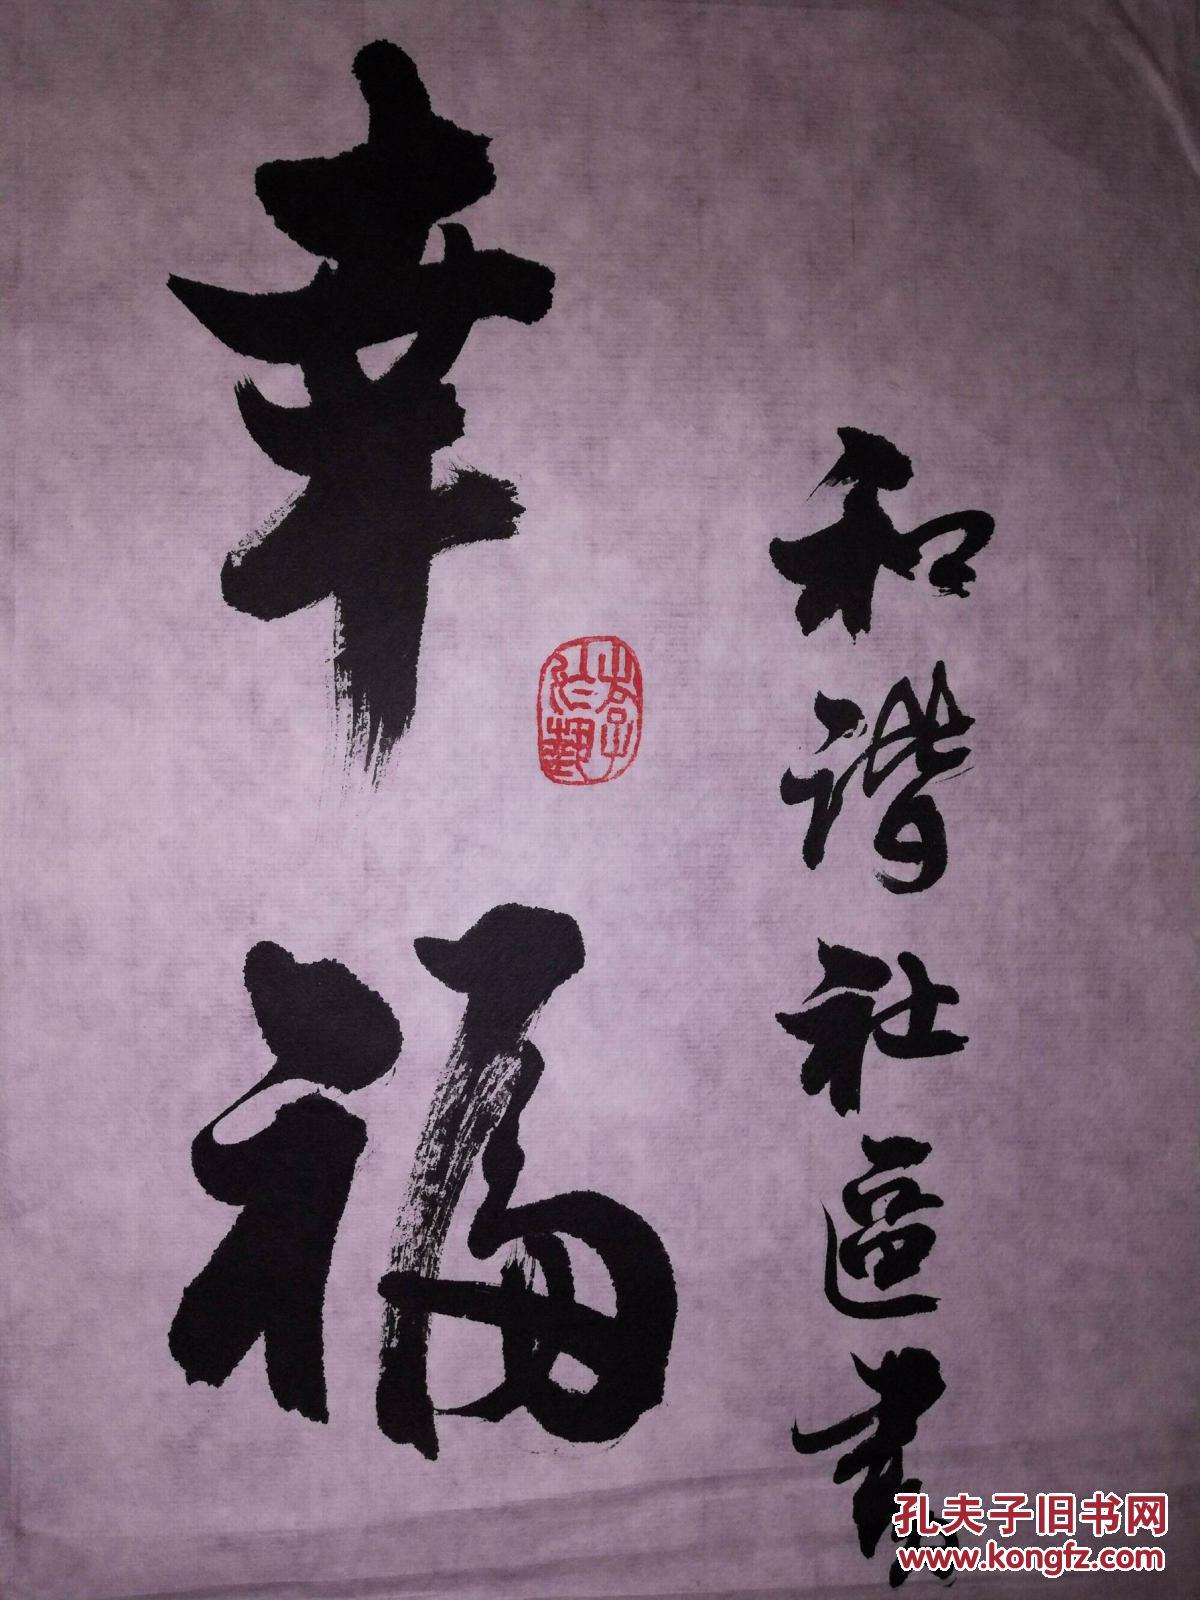 和谐社區書
幸福
孔夫子旧书网
www.kongfz.com